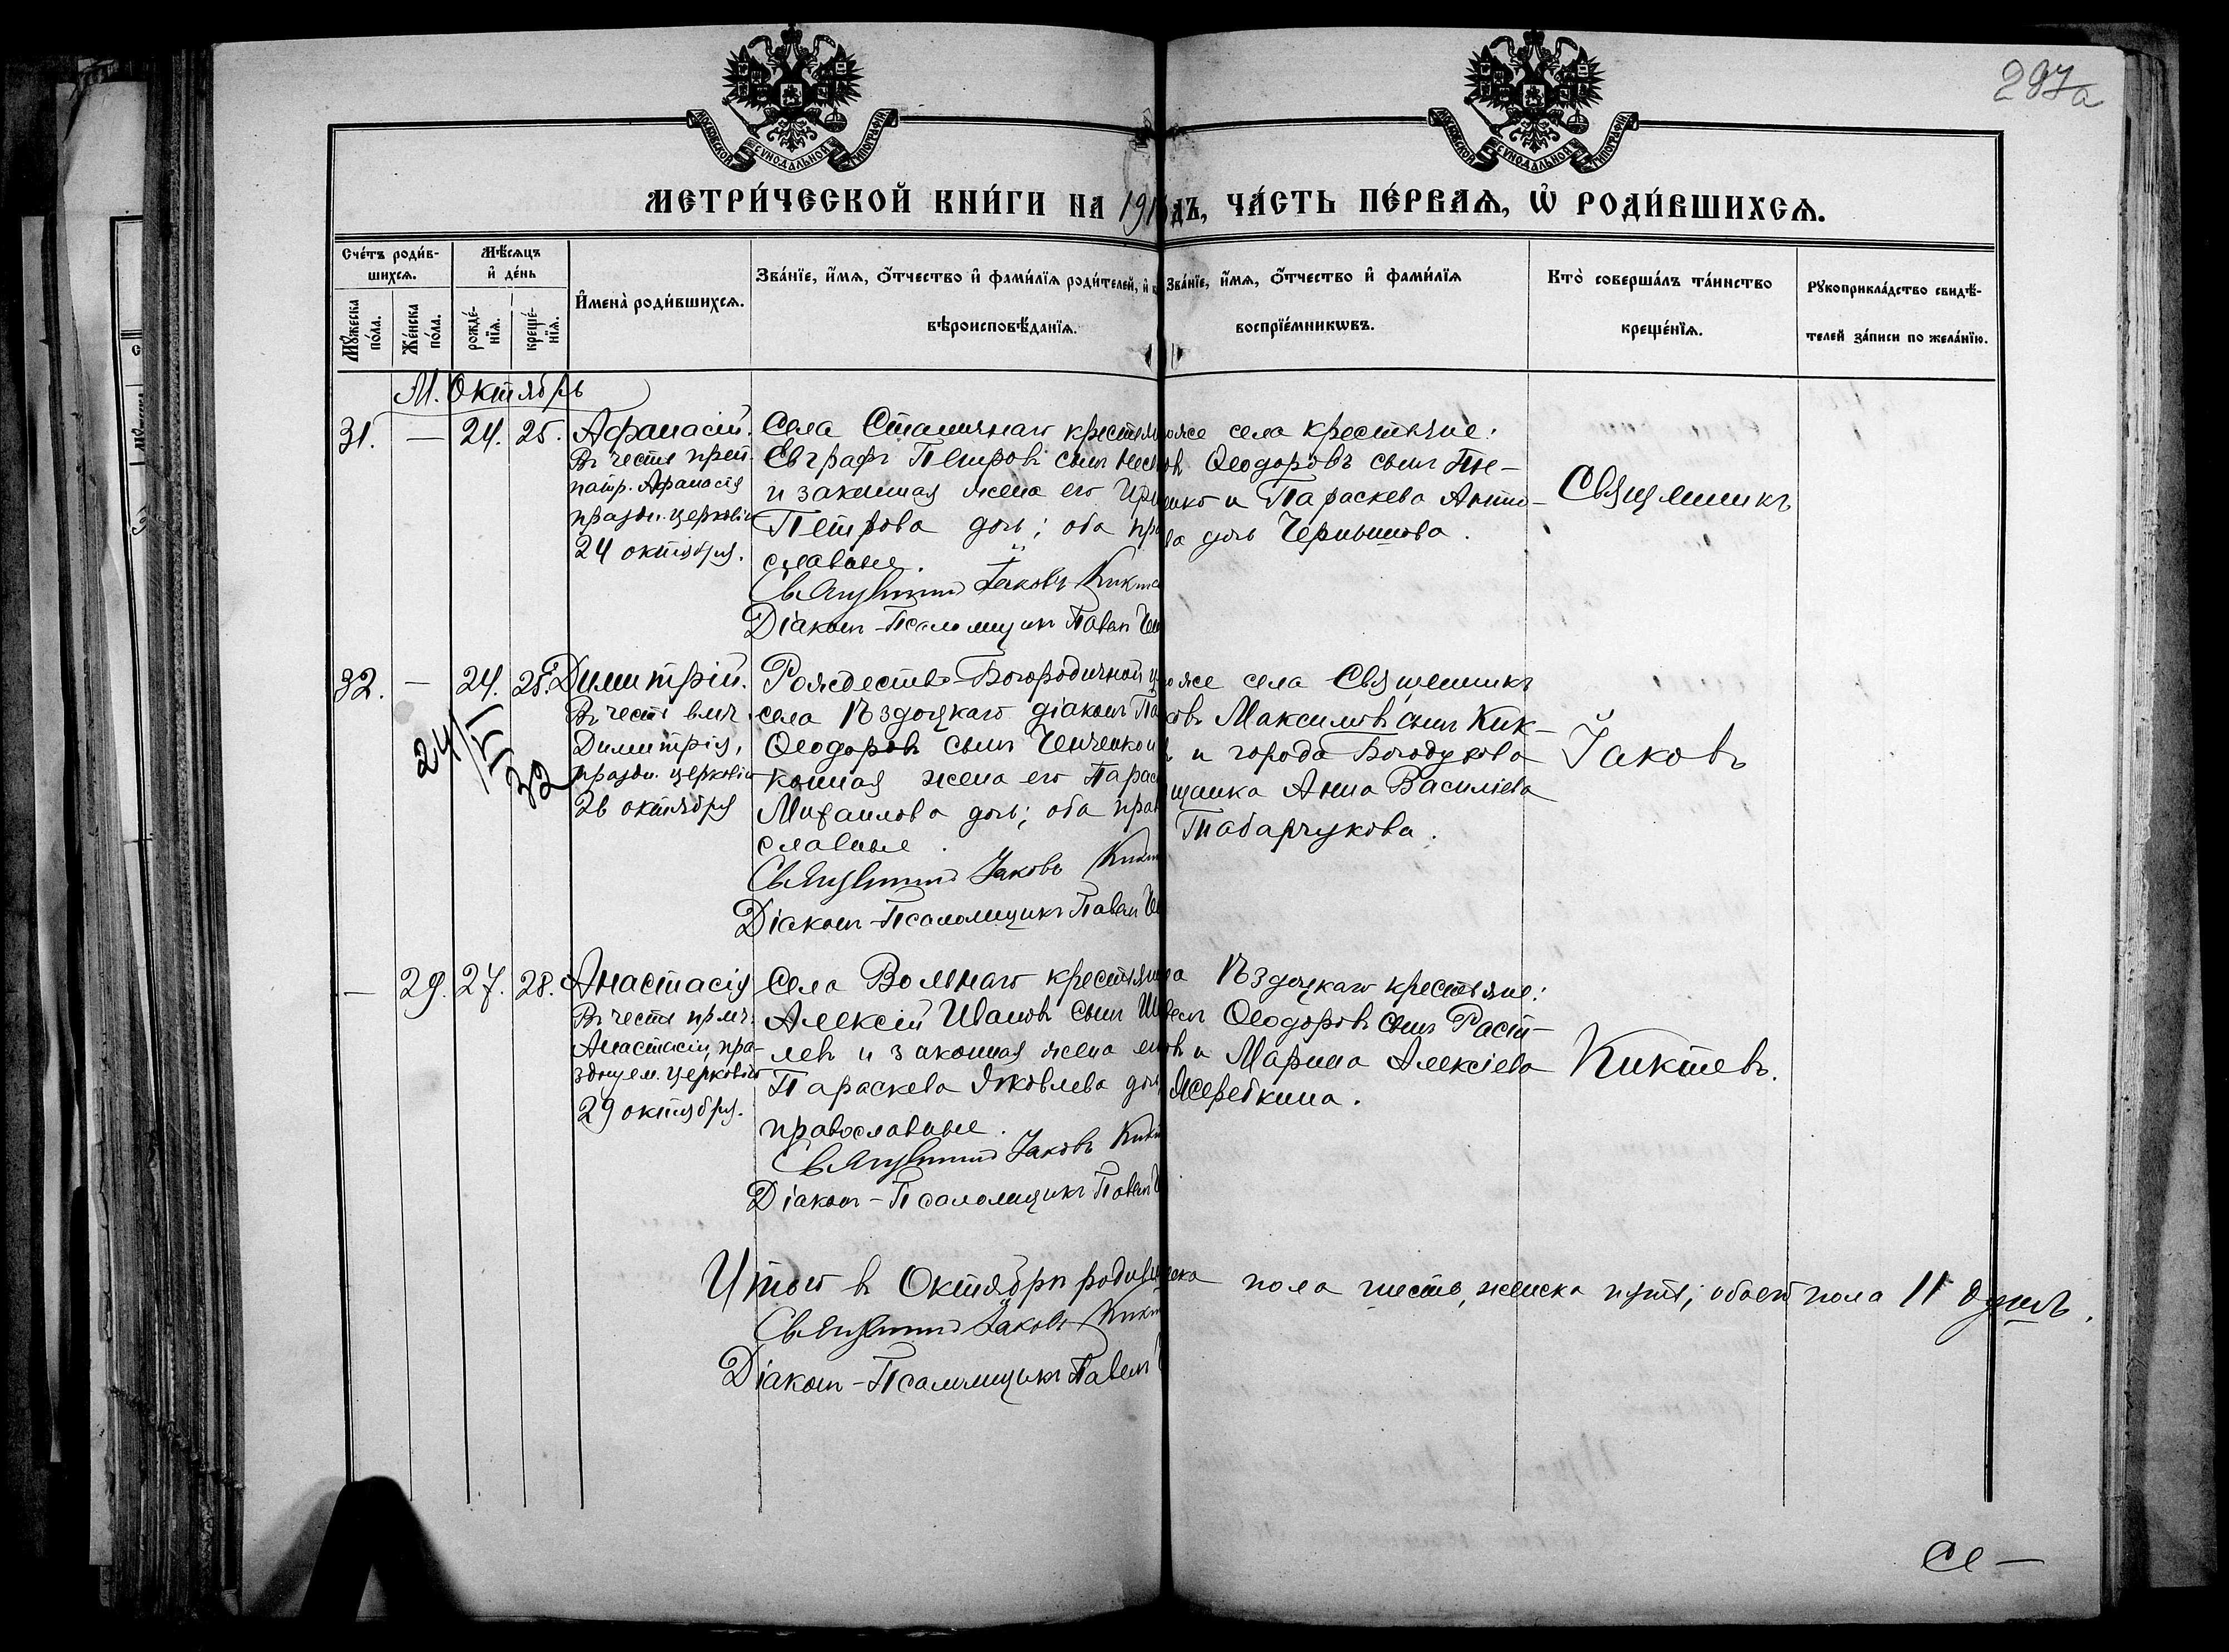 297а
МОСКОВСКОЙ СѴНОДАЛЬНОЙ ТИПОГРАФІИ
МОСКОВСКОЙ СѴНОДАЛЬНОЙ ТИПОГРАФІИ
МЕТРИ́ЧЕСКОЙ КНИ́ГИ НА 191
дъ, ЧА́СТЬ ПЕ́РВАѦ, Ѽ РОДИ́ВШИХСѦ.
Сче́тъ роди́в-
шихсѧ.
Мѣ́сѧцъ
и҆ де́нь
И҆мена̀ роди́вшихсѧ.
Зва́нїе, и҆́мѧ, ѻ҆́тчество и҆ фами́лїѧ роди́телей, и҆
вѣроисповѣ́данїѧ.
Мꙋ́жеска по́ла.
Же́нска по́ла.
рожде́-
нїѧ.
креще́-
нїѧ.
Зва́нїе, и҆́мѧ, ѻ҆́тчество и҆ фами́лїѧ
воспрїе́мникѡвъ.
Кто̀ соверша́лъ та́инство
креще́нїѧ.
Рꙋкоприкла́дство свидѣ́-
телей за́писи по жела́нїю.
М. Октябрь
31. — 24. 25. Аѳанасій.
Въ честь преп.
патр. Аѳанасія
праздн. церковію
24 октября.
Села Станичнаго крестьян
Евграфъ Петровъ сынъ
и законная жена его Ири
Петрова дочь; оба пра
славные.
Священникъ Іаковъ Кикте
Діаконъ-Псаломщикъ Павелъ Чен
оже села крестьяне:
Ѳеодоровъ сынъ
енко и Параскева
ва дочь Чернышова.
Священникъ
32. — 24. 25. Димитрій.
Въ честь влмч.
Димитрія,
праздн. церковію
26 октября
24/II 32
Рождество-Богородичной ц
села Ѣздоцкаго діаконъ Па
Ѳеодоровъ сынъ Ченченко и
конная жена его Парас
Михаилова дочь; оба прав
славные.
Священникъ Іаковъ Кикт
Діаконъ-Псаломщикъ Павелъ Че
оже села Священникъ
ковъ Максимовъ сынъ Кик-
ъ и города Богодухова
щанка Анна Василіева
Табарчукова.
Іаковъ
— 29. 27. 28. Анастасія
Въ честь прмч.
Анастасіи, пра-
зднуем. церковію
29 октября.
Села Вольнаго крестьяни
Алексій Ивановъ сынъ
левъ и законная жена ег
Параскева Яковлева дочь
православные.
Священникъ Іаковъ Кикт
Діаконъ-Псаломщикъ Павелъ
а Ѣздоцкаго крестьяне:
велъ Ѳеодоровъ сынъ
въ и Марина Алексіева
Жеребкина.
Киктевъ.
Итого въ Октябрѣ родивш
еска пола шесть, женска пять; обоего пола 11 душъ.
Священникъ Іаковъ Кикт
Діаконъ-Псаломщикъ Павелъ